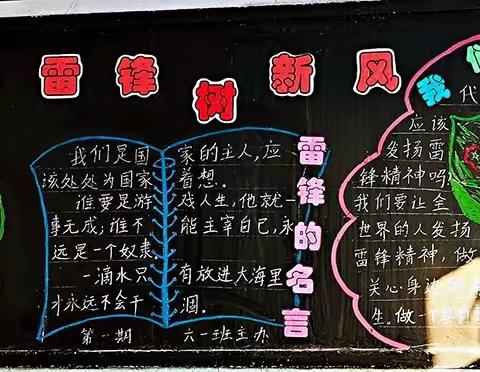 雷锋树新风
我们是国家的主人,应
该处处为国家着想.
谁要是游戏人生,他就一
事无成;谁不能主宰自己,永
远是一个奴隶.
一滴水只有放进大海里
才永远不会干涸.
第一期 六一班主办
雷锋的名言
我们
代
应该
发扬雷
锋精神吗
我们要让全
世界的人发扬
雷锋精神,做
关心身边的
生。做一个具有